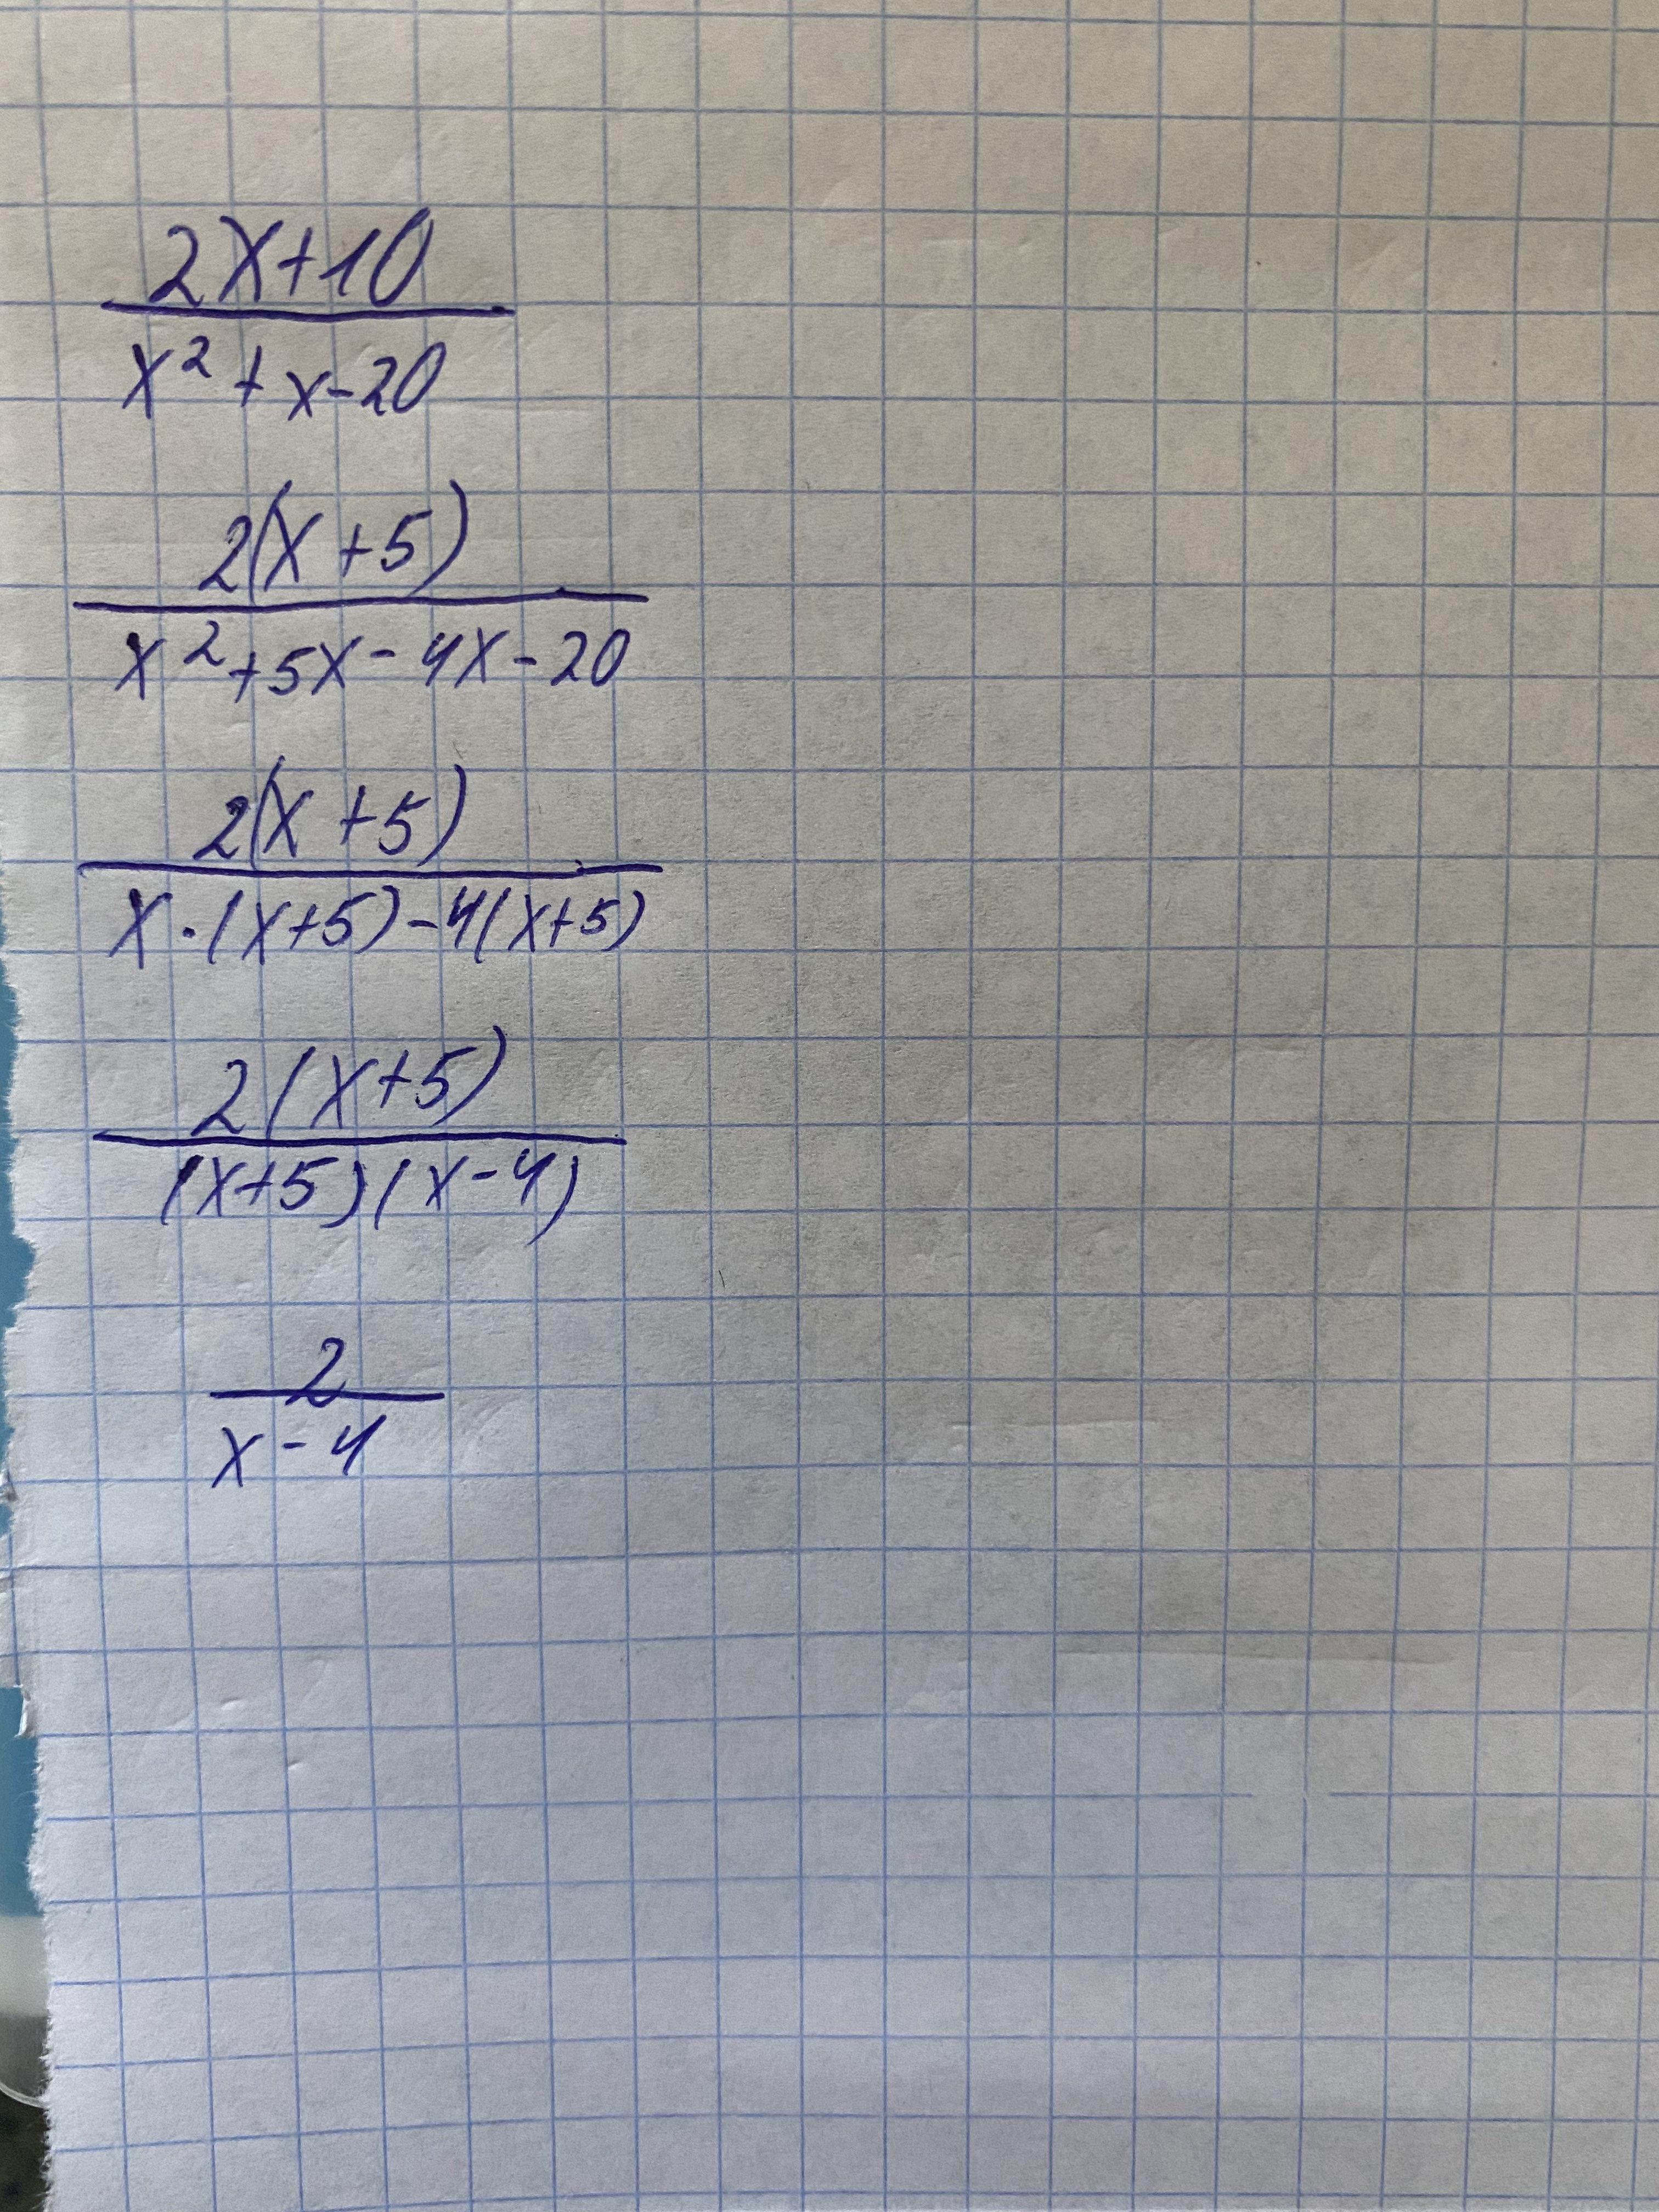 2x+10
x² + x-20
2(x+5)
x²+5x-4x-20
2(x+5)
x·(x+5)-4(x+5)
2(x+5)
(x+5)(x-4)
2
x-4